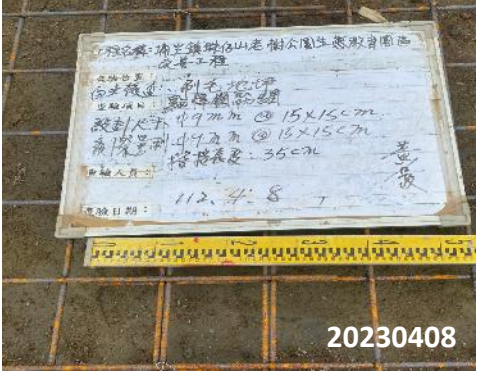 工程名稱：埔里鎮珠仔山老樹公園生態教育園區
改善工程
查驗位置：
自主檢查：刷毛地坪
查驗項目：點焊鋼絲網
設計尺寸：ψ9mm @ 15x15cm
ψ9mm @ 15x15cm
搭接長度：35cm
查驗人員：
黃
112. 4. 8
查驗日期：
20230408